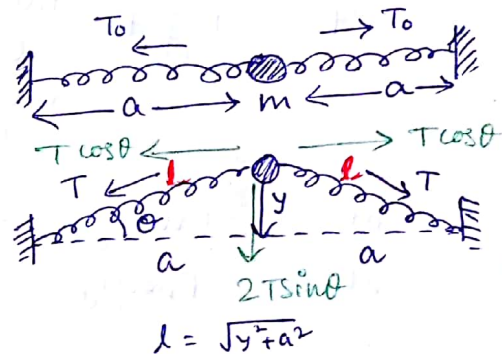 T₀ T₀
a m a
T cosθ T cosθ
T l l T
θ y
a a
2Tsinθ
l = √y²+a²